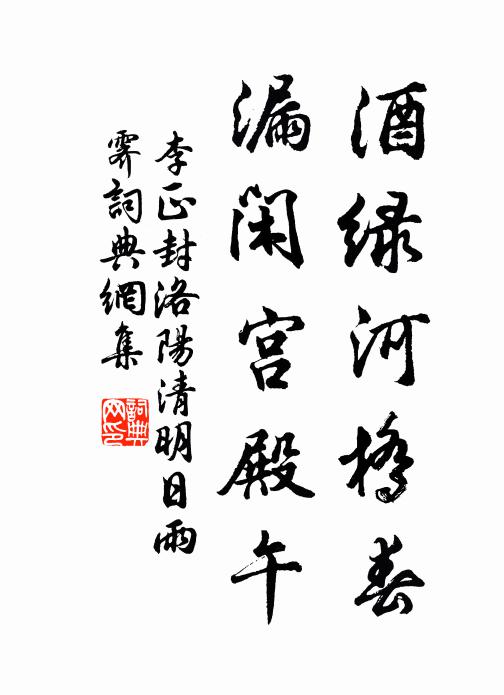 酒绿河橋春
漏闲宫殿午
李正封洛陽清明日雨
霽詞典網集
詞典
网印